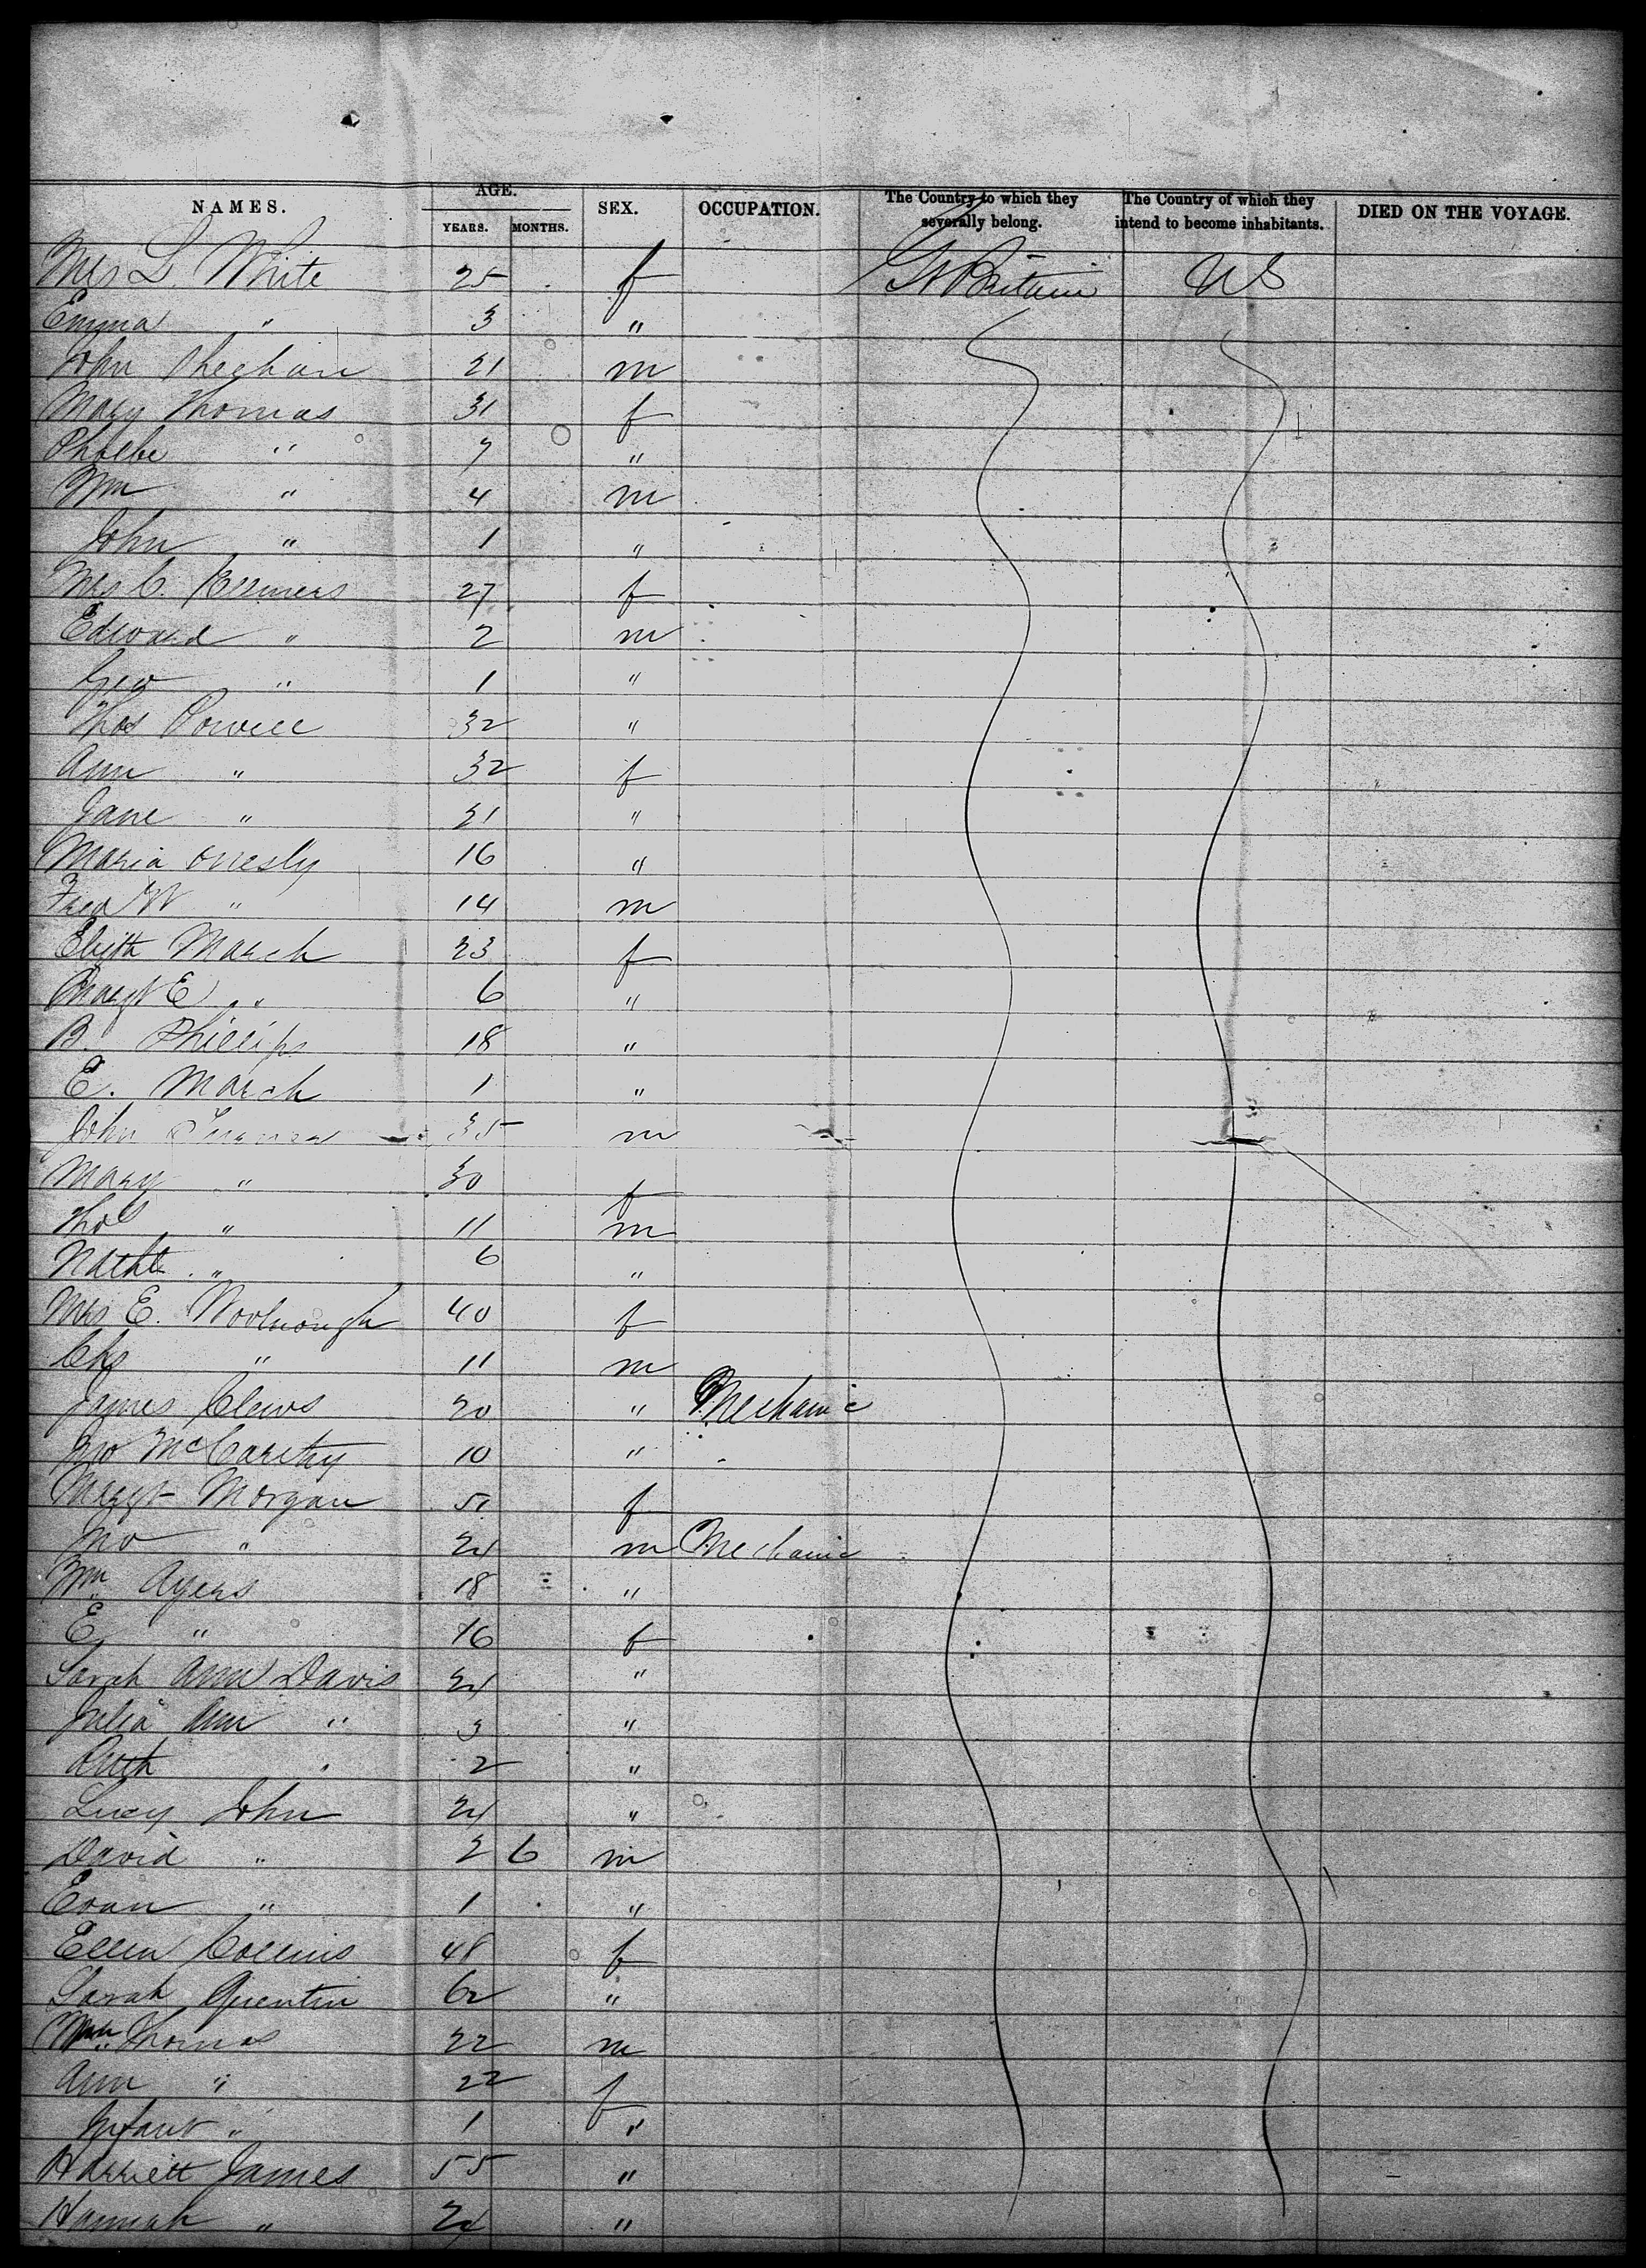 NAMES. AGE. YEARS. MONTHS. SEX. OCCUPATION. The Country to which they severally belong. The Country of which they intend to become inhabitants. DIED ON THE VOYAGE.
Mrs L. White 25 f Gt Britain US
Emma " 3 "
John Sheehan 21 m
Mary Thomas 31 f
Phoebe " 7 "
Wm " 4 m
John " 1 "
Mrs C. 27 f
Edward " 2 m
Geo " 1 "
Thos Powell 32 "
Ann " 32 f
Jane " 21 "
Maria Onesly 16 "
Fred W " 14 m
Elizth March 23 f
Margt E " 6 "
B. Phillips 18 "
E. March 1 "
John 35 m
Mary " 30 f
Thos " 11 m
Nathl " 6 "
Mrs E. Woolnough 40 f
Chs " 11 m
James Clews 20 " Mechanic
Jno McCarthy 10 "
Margt Morgan 51 f
Jno " 21 m Mechanic
Wm Ayers 18 "
E " 16 f
Sarah Ann Davis 24 "
Julia Ann " 3 "
Ruth " 2 "
Lucy John 24 "
David " 2 6 m
Evan " 1 "
Ellen Collins 48 f
Sarah Quentin 62 "
Wm Thomas 22 m
Ann " 22 f
Infant " 1 "
Harriett James 55 "
Hannah " 24 "